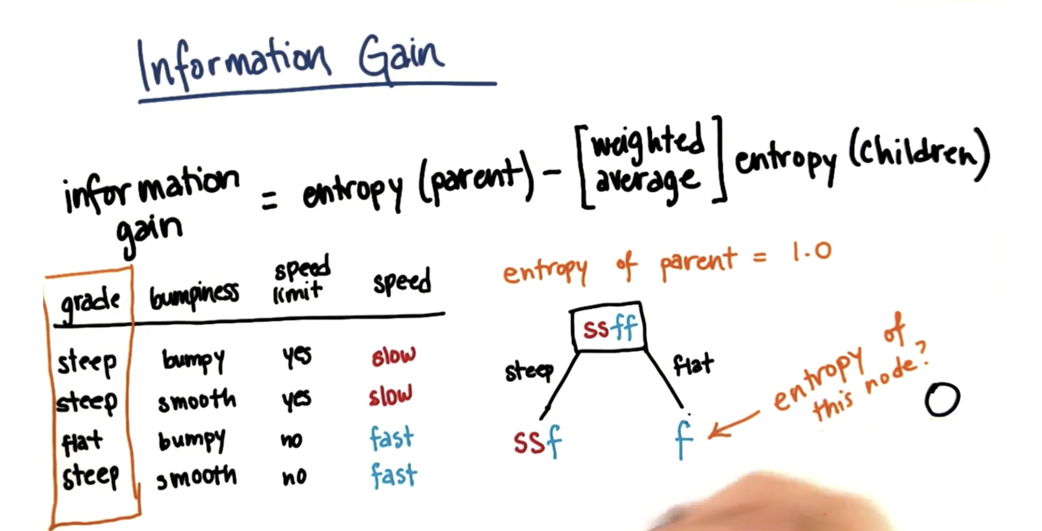 Information Gain
information gain = entropy (parent) - [weighted average] entropy (children)
entropy of parent = 1.0
grade bumpiness speed limit speed
steep bumpy yes slow
steep smooth yes slow
flat bumpy no fast
steep smooth no fast
ssff
steep flat
ssf f
entropy of
this node?
0